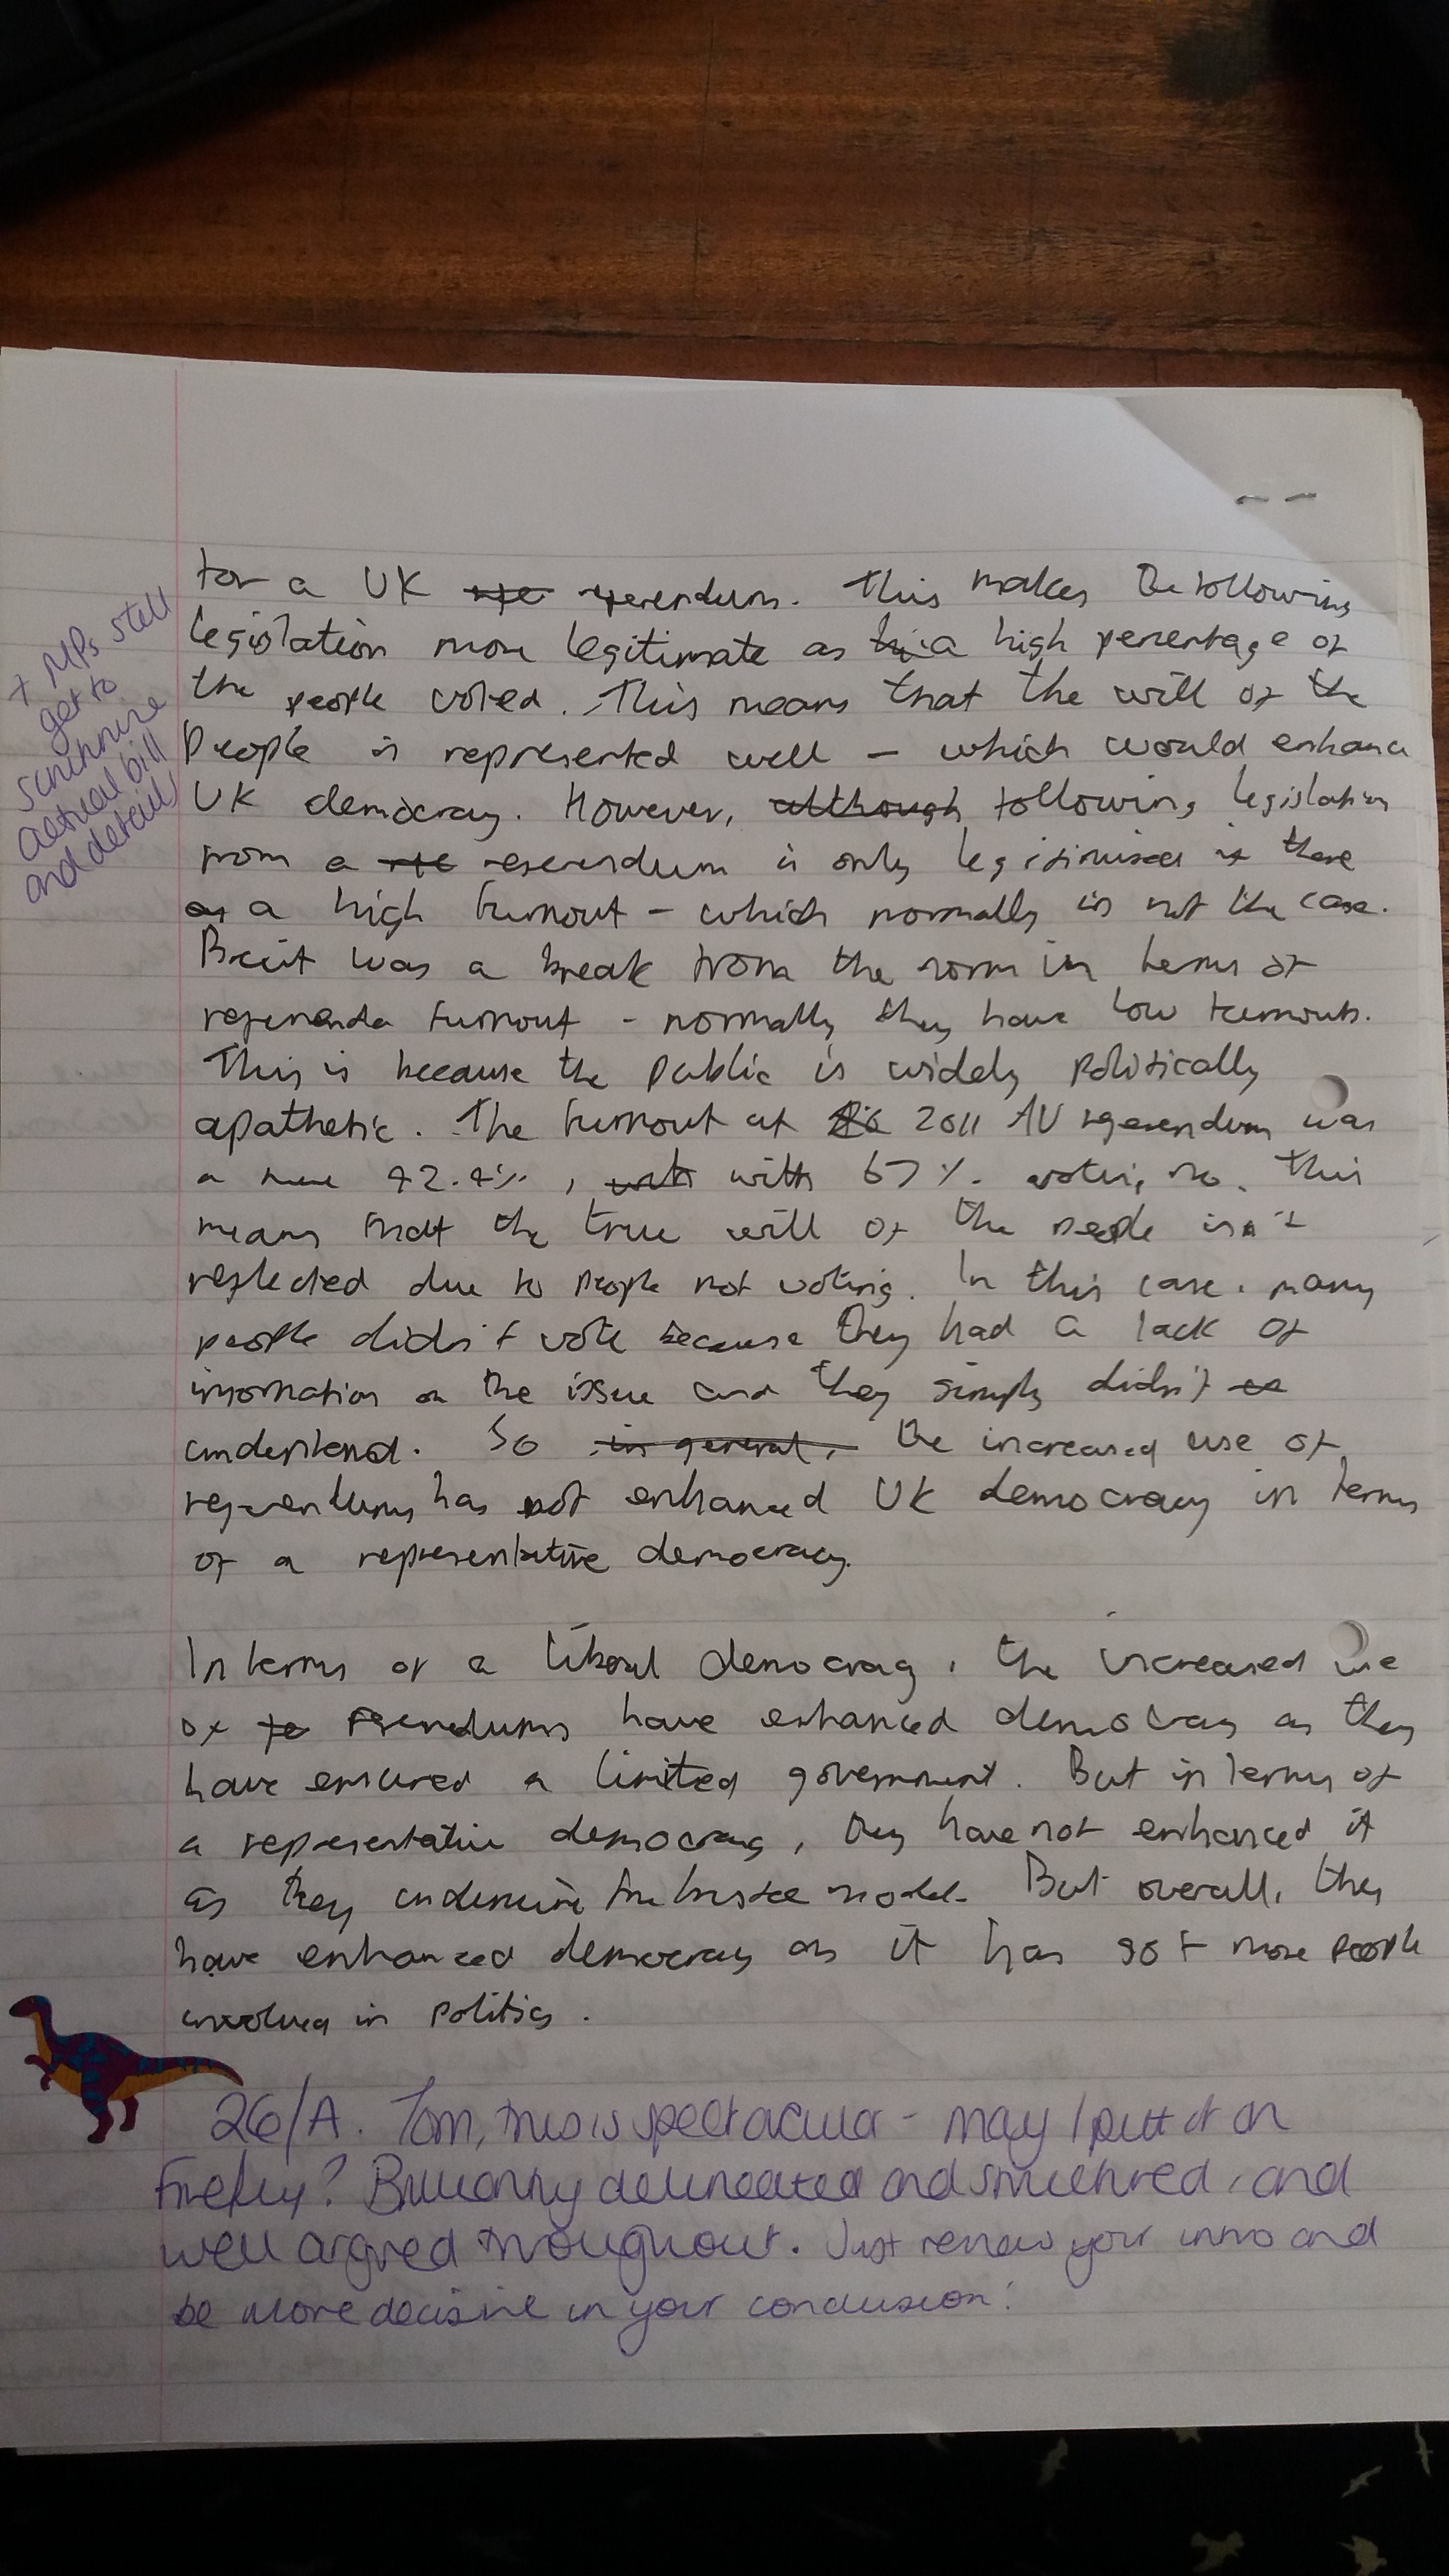 for a UK referendum. This makes the following
legislation more legitimate as a high percentage of
the people voted. This means that the will of the
people is represented well – which would enhance
UK democracy. However, although following legislation
from a referendum is only legitimised if there
a high turnout – which normally is not the case.
Brexit was a break from the norm in terms of
referenda turnout - normally they have low turnouts.
This is because the public is widely politically
apathetic. The turnout at 2011 AV referendum was
a mere 42.4%, with 67% voting no. This
means that the true will of the people isn't
reflected due to people not voting. In this case, many
people didn't vote because they had a lack of
information on the issue and they simply didn't
understand. So in general, the increased use of
referendums has not enhanced UK democracy in terms
of a representative democracy.
In terms of a liberal democracy, the increased use
of referendums have enhanced democracy as they
have ensured a limited government. But in terms of
a representative democracy, they have not enhanced it
as they undermine the trustee model. But overall, they
have enhanced democracy as it has got more people
involved in politics.
+ MPs still
get to
scrutinise
actual bill
and detail
26/A. Tom, this is spectacular - may I put it on
Firefly? Brilliantly delineated and structured, and
well argued throughout. Just renew your intro and
be more decisive in your conclusion!